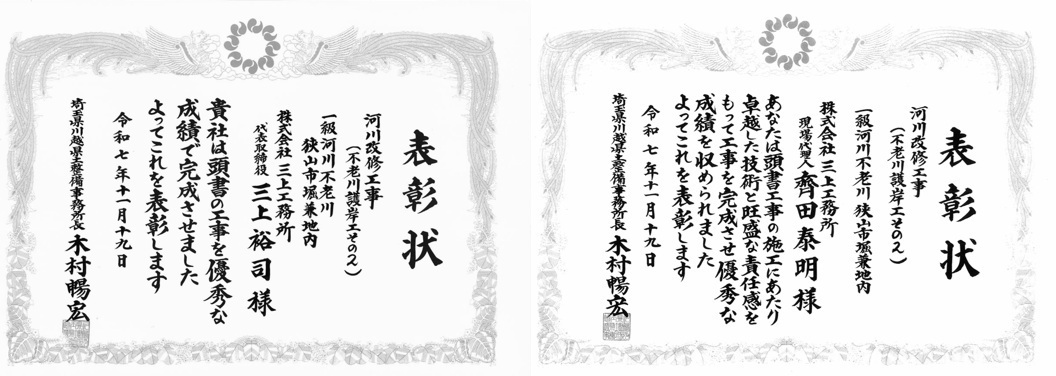 表彰状
河川改修工事
(不老川護岸工その2)
一級河川不老川
狭山市堀兼地内
株式会社 三上工務所
代表取締役 三上裕司様
貴社は頭書の工事を優秀な
成績で完成させました
よってこれを表彰します
令和七年十一月十九日
埼玉県川越県土整備事務所長 木村暢宏
表彰状
河川改修工事
(不老川護岸工その2)
一級河川不老川 狭山市堀兼地内
株式会社 三上工務所
現場代理人 齊田泰明様
あなたは頭書工事の施工にあたり
卓越した技術と旺盛な責任感を
もって工事を完成させ優秀な
成績を収められました
よってこれを表彰します
令和七年十一月十九日
埼玉県川越県土整備事務所長 木村暢宏